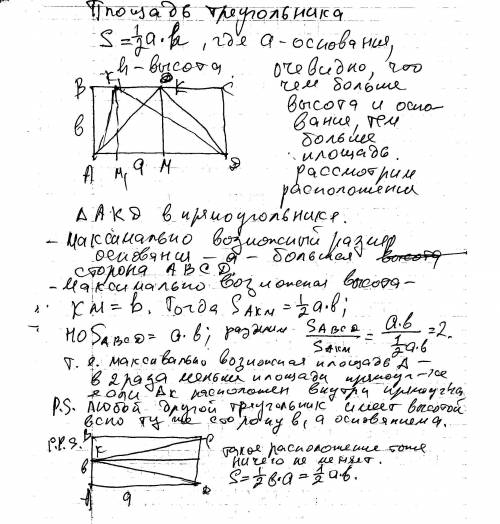 Площадь треугольника
S = 1/2 a·h, где a - основания,
h - высота. Очевидно, что
чем больше
высота и осно-
вание, тем
больше
площадь.
рассмотрим
расположения
K1 K
B C
в
A M1 a M D
Δ AKD в прямоугольнике.
- Максимально возможный размер
основания - a - большая высота
сторона ABCD.
- Максимально возможная высота -
KM = b. Тогда S AKM = 1/2 a·b;
но S ABCD = a·b; S ABCD / S AKM = a·b / 1/2 a·b = 2.
т. е. максимально возможная площадь Δ -
в 2 раза меньше площади
если расположен внутри
P.S. Любой другой треугольник имеет высотой
ту же сторону b, а основанием a.
P.P.S.
B C
K
в
A a D
такое расположение тоже
ничего не меняет.
S = 1/2 b·a = 1/2 a·b.